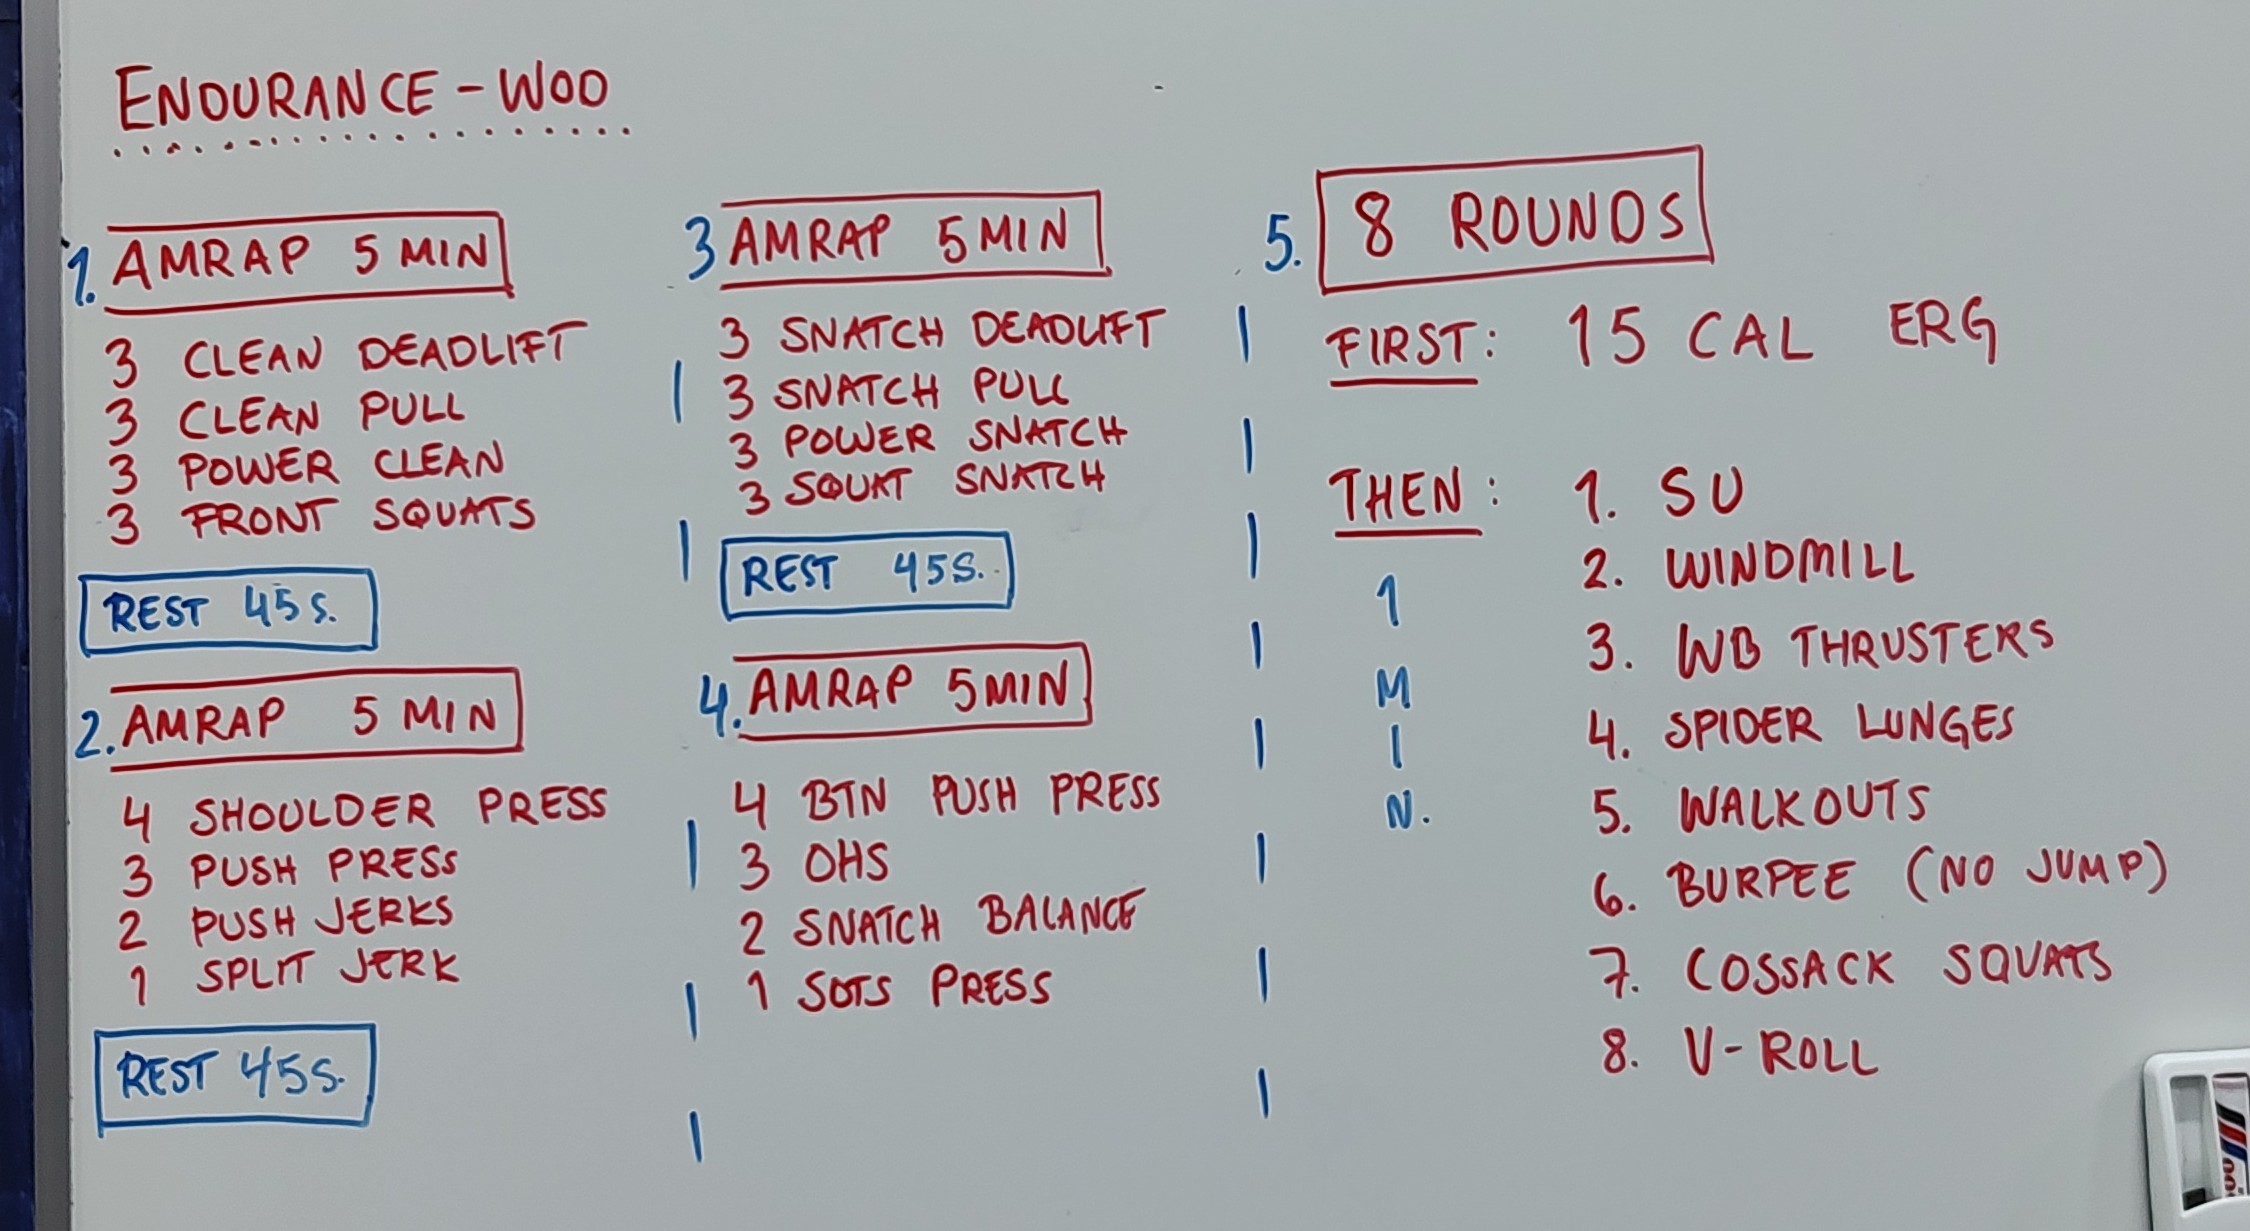 ENDURANCE - WOD
1. AMRAP 5 MIN
3 CLEAN DEADLIFT
3 CLEAN PULL
3 POWER CLEAN
3 FRONT SQUATS
REST 45 S.
2. AMRAP 5 MIN
4 SHOULDER PRESS
3 PUSH PRESS
2 PUSH JERKS
1 SPLIT JERK
REST 45S.
3 AMRAP 5 MIN
3 SNATCH DEADLIFT
3 SNATCH PULL
3 POWER SNATCH
3 SQUAT SNATCH
REST 45S.
4. AMRAP 5MIN
4 BTN PUSH PRESS
3 OHS
2 SNATCH BALANCE
1 SOTS PRESS
5. 8 ROUNDS
FIRST: 15 CAL ERG
THEN: 1. SU
1 MIN.
2. WINDMILL
3. WB THRUSTERS
4. SPIDER LUNGES
5. WALKOUTS
6. BURPEE (NO JUMP)
7. COSSACK SQUATS
8. V-ROLL